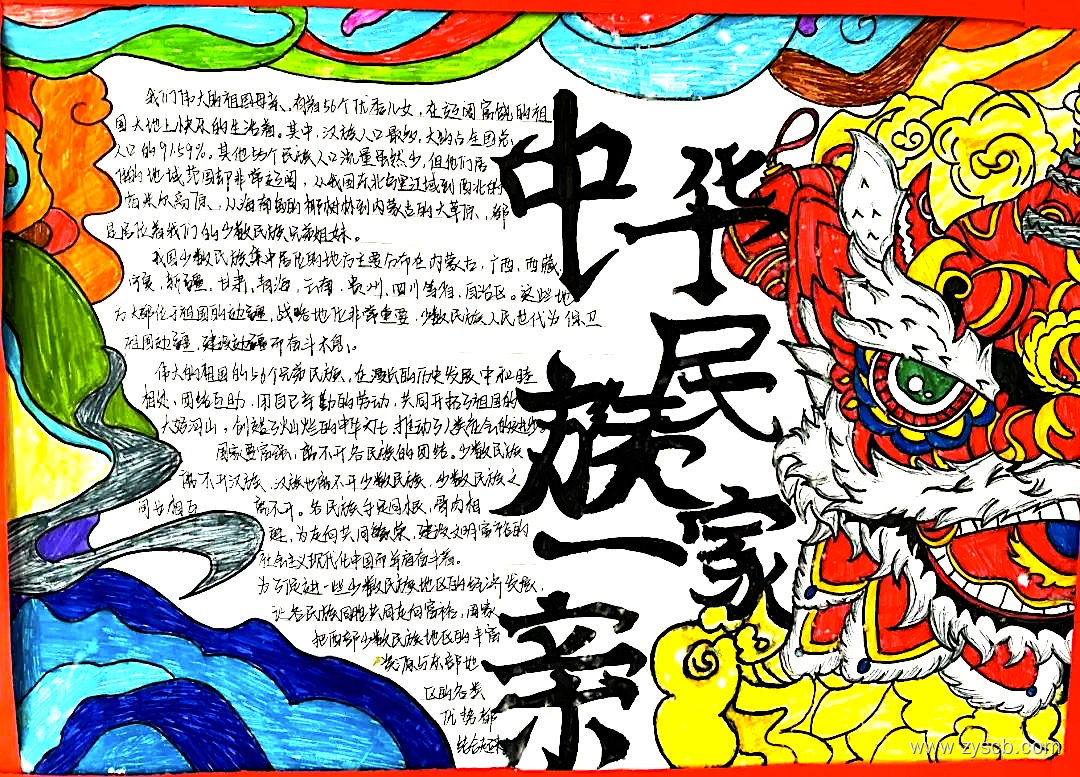 中华民族一家亲
我们伟大的祖国母亲、有着56个优秀儿女，在辽阔富饶的祖
国大地上快乐的生活着。其中，汉族人口最多，大约占全国总
人口的91.59%。其他55个民族人口流量虽然少，但他们居
住的地域范围却非常辽阔，从我国东北角黑辽域到西北的
帕米尔高原、从海南岛的椰树林到内蒙古的大草原，都
居住着我们的少数民族兄弟姐妹。
我国少数民族集中居住的地方主要分布在内蒙古，广西，西藏，
宁夏，新疆，甘肃，青海，云南，贵州，四川等省，自治区。这些地
方大都位于祖国的边疆，战略地位非常重要，少数民族人民世代为保卫
祖国边疆，建设边疆而奋斗不息。
伟大的祖国的56个兄弟民族，在漫长的历史发展中和睦
相处，团结互助，用自己辛勤的劳动，共同开拓了祖国的
大好河山，创造了灿烂的中华文化，推动了人类社会的进步
国家要富强，离不开各民族的团结。少数民族
离不开汉族，汉族也离不开少数民族，少数民族之
间也相互离不开。各民族兄弟同根，骨肉相
连，为走向共同繁荣，建设文明富裕的
社会主义现代化中国而并肩奋斗着。
为了促进一些少数民族地区的经济发展，
让各民族同胞共同走向富裕，国家
把西部少数民族地区的丰富
资源与东部地
区的各类
优势都
结合起来
www.zyscb.com